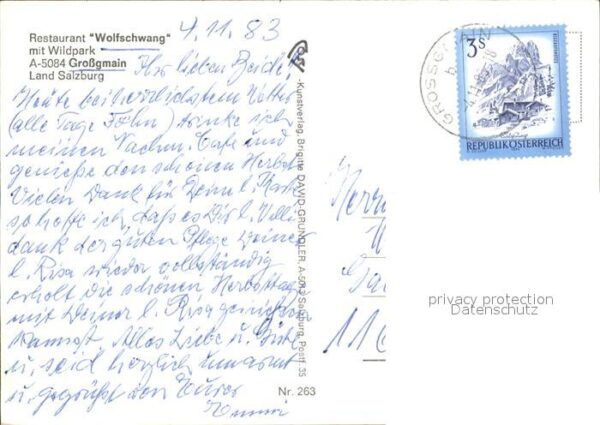 4.11.83
Restaurant "Wolfschwang"
mit Wildpark
A-5084 Großgmain
Land Salzburg
Ihr lieben Beide!
Heute bei herrlichstem Wetter
(alle Tage Föhn) trinke ich
meinen Nachm. Cafe und
genieße den schönen Herbst
Vielen Dank für Deine l. Karte
so hoffe ich, daß es Dir l. Willi
dank der guten Pflege Deiner
l. Risa wieder vollständig
erholt die schönen Herbsttage
mit Deiner l. Risa genießen
kannst. Alles Liebe u. Gute
u. seid herzlich umarmt
u. gegrüßt von Eurer
Kunstverlag, Brigitte DAWID-GRUNDLER, A-5013 Salzburg, Postf. 35
Nr. 263
GROSSGMAIN
3 S
REPUBLIK ÖSTERREICH
Herrn
11
privacy protection
Datenschutz